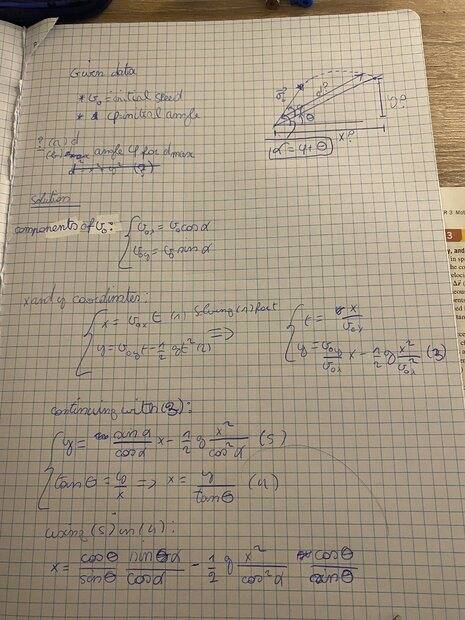 Given data
* v₀ = initial speed
* φ initial angle
? (a) d
(b) angle φ for dmax
v₀ d? φ θ y?
x?
α = φ + θ
Solution
components of v₀: { v₀ₓ = v₀ cos α
v₀y = v₀ sin α
x and y coordinates:
{ x = v₀ₓ t (1) solving (1) for t ⇒ { t = x/v₀ₓ
y = v₀y t - 1/2 g t² (2) y = v₀y/v₀ₓ x - 1/2 g x²/v₀ₓ² (3)
continuing with (3):
{ y = sin α/cos α x - 1/2 g x²/cos² α (5)
tan θ = y/x => x = y/tan θ (4)
using (5) in (4):
x = cos θ/sin θ sin α/cos α - 1/2 g x²/cos² α cos θ/sin θ
R 3 Mot
3
y, and
in sp
the co